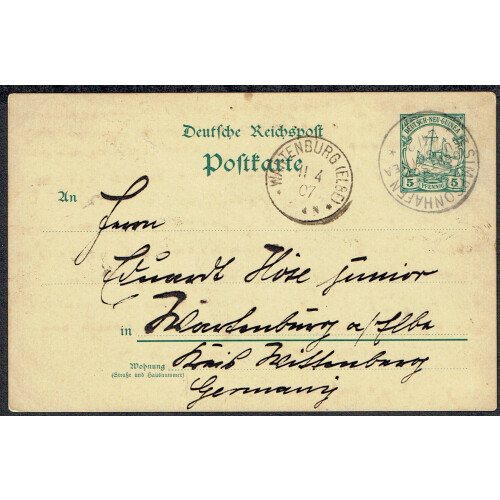 Deutsche Reichspost
Postkarte
DEUTSCH-NEU-GUINEA
5 PFENNIG 5
SIMPSONHAFEN
WARTENBURG (ELBE)
11 4
07
N
An
Herrn
Eduardt Höse junior
in Wartenburg a/Elbe
Wohnung
(Straße und Hausnummer)
Kreis Wittenberg
Germany